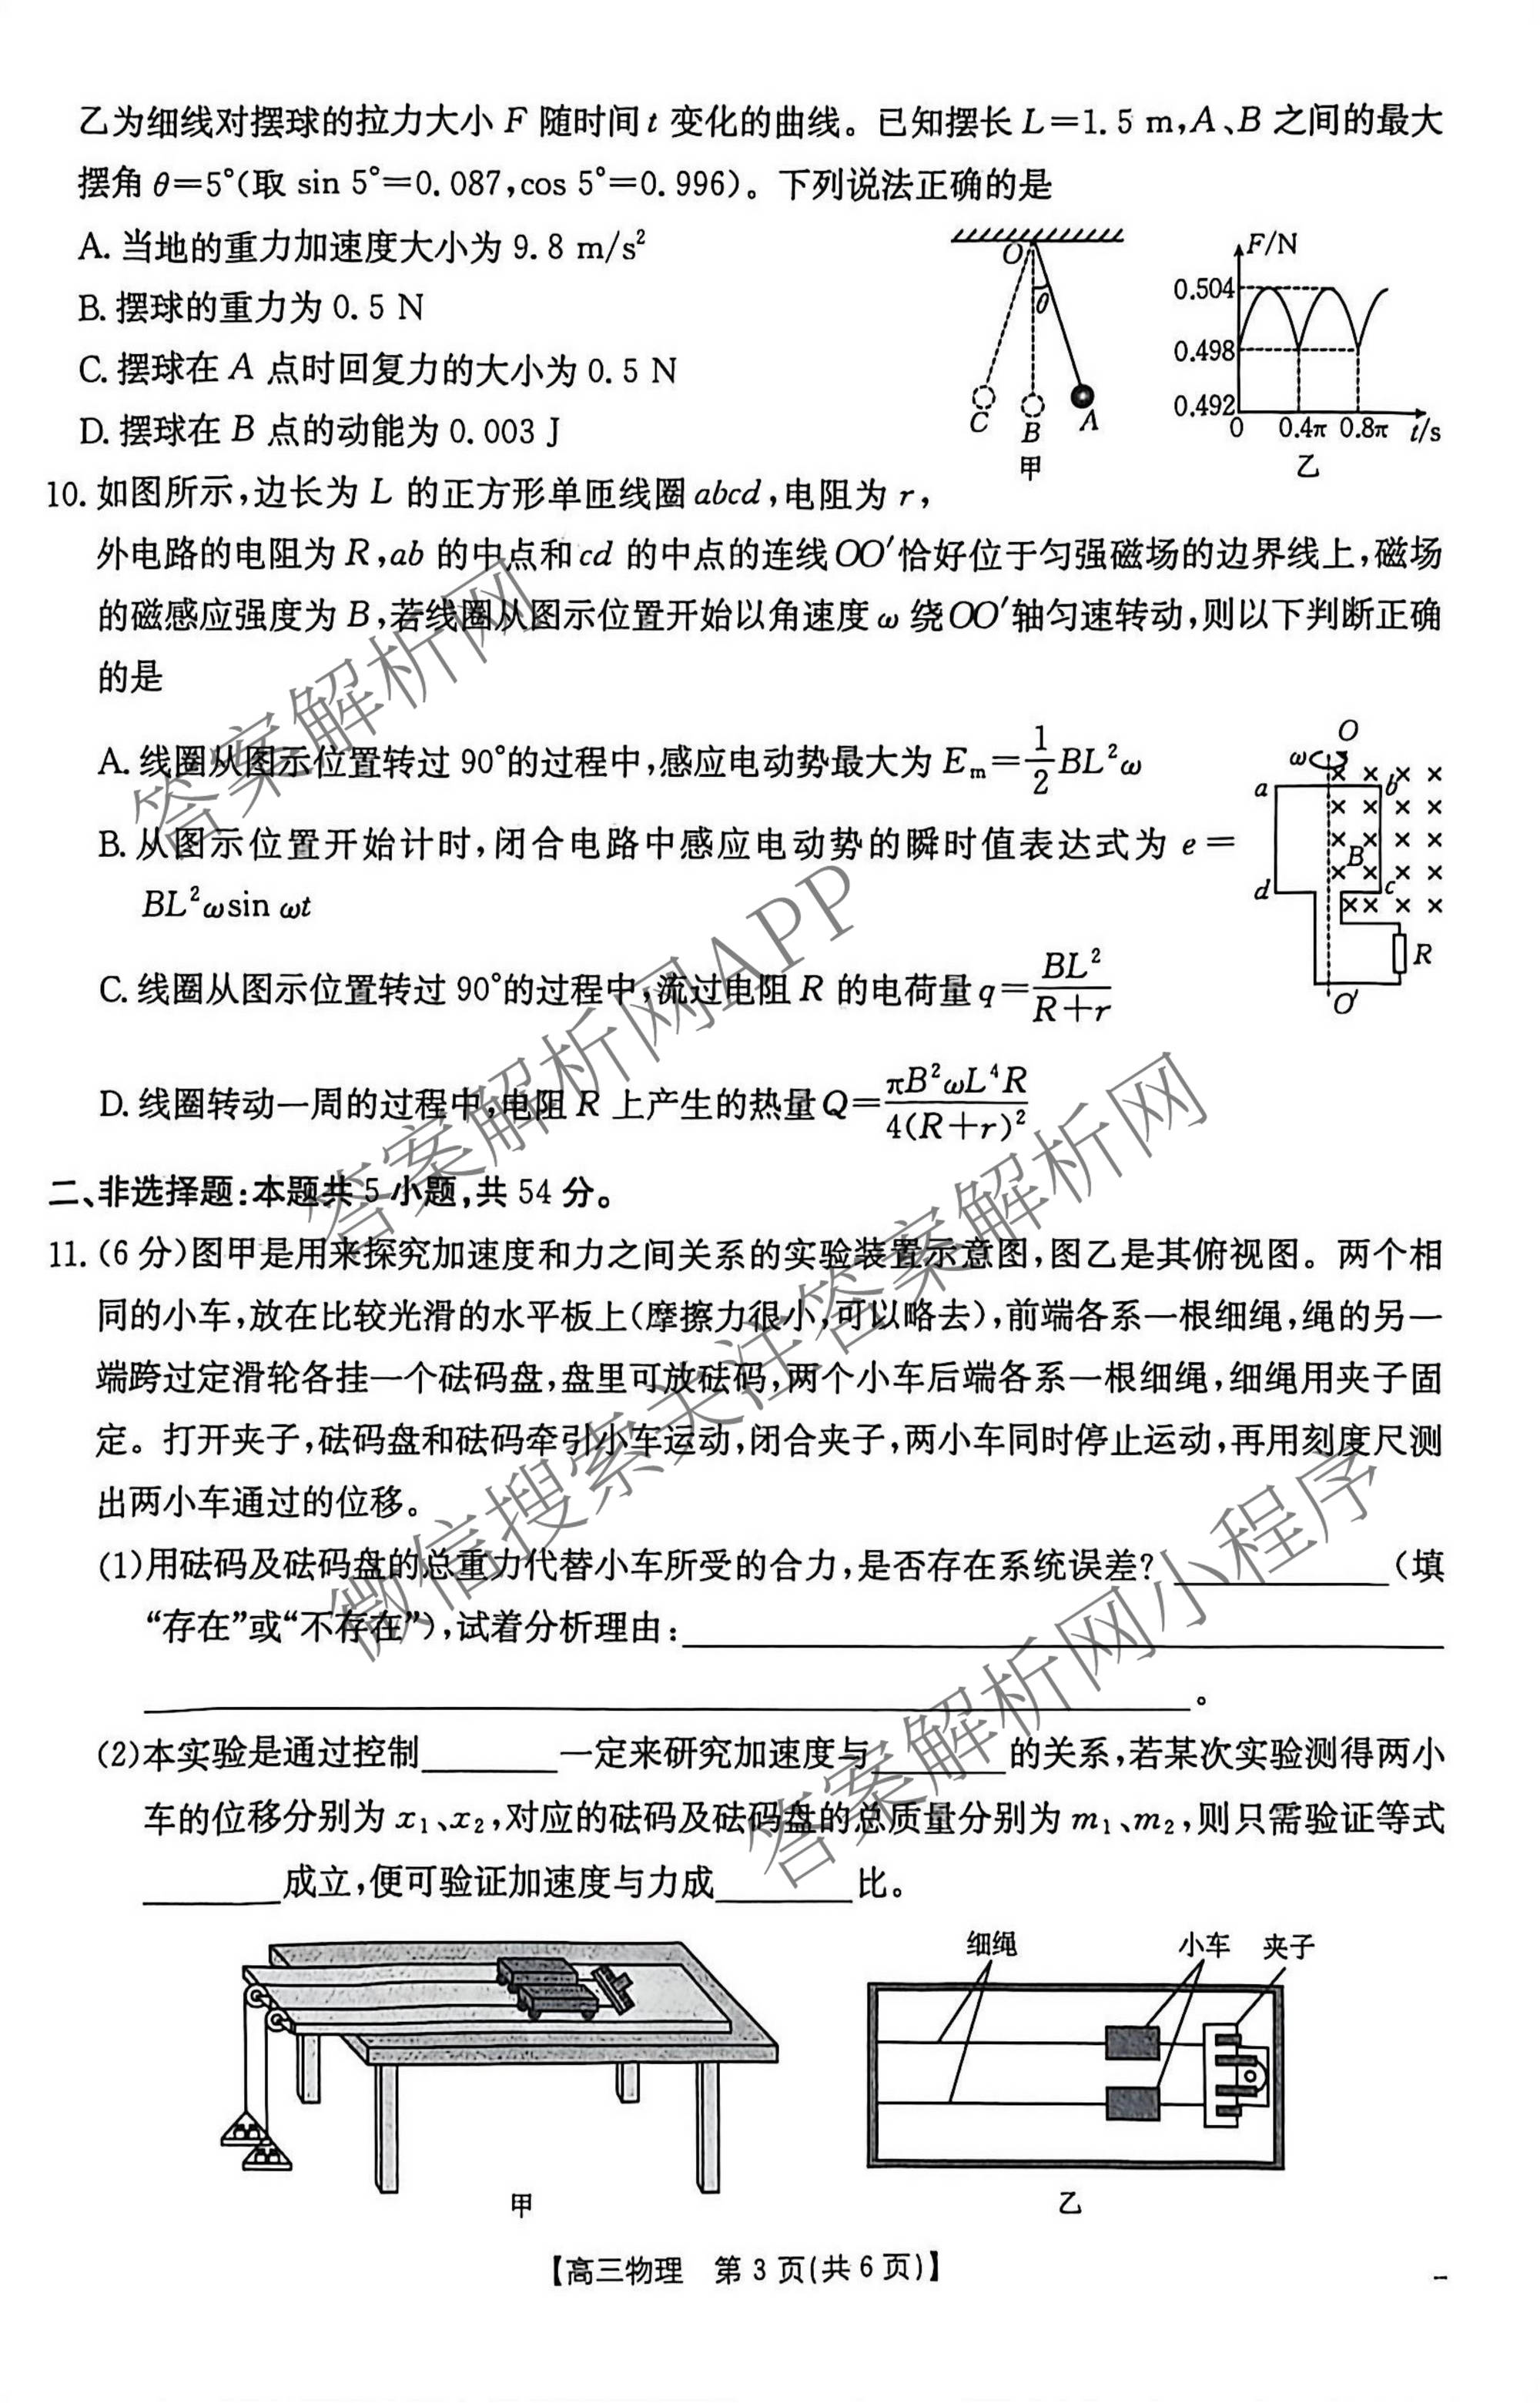 乙为细线对摆球的拉力大小 F 随时间 t 变化的曲线。已知摆长 L=1.5 m,A、B 之间的最大
摆角 θ=5°(取 sin 5°=0.087,cos 5°=0.996)。下列说法正确的是
A. 当地的重力加速度大小为 9.8 m/s²
B. 摆球的重力为 0.5 N
C. 摆球在 A 点时回复力的大小为 0.5 N
D. 摆球在 B 点的动能为 0.003 J
O
θ
C
B
A
甲
F/N
0.504
0.498
0.492
0
0.4π
0.8π
t/s
乙
10. 如图所示,边长为 L 的正方形单匝线圈 abcd,电阻为 r,
外电路的电阻为 R,ab 的中点和 cd 的中点的连线 OO′恰好位于匀强磁场的边界线上,磁场
的磁感应强度为 B,若线圈从图示位置开始以角速度 ω 绕 OO′轴匀速转动,则以下判断正确
的是
A. 线圈从图示位置转过 90°的过程中,感应电动势最大为 Eₘ=1/2 BL²ω
B. 从图示位置开始计时,闭合电路中感应电动势的瞬时值表达式为 e=
BL²ωsin ωt
C. 线圈从图示位置转过 90°的过程中,流过电阻 R 的电荷量 q=BL²/(R+r)
D. 线圈转动一周的过程中,电阻 R 上产生的热量 Q=πB²ωL⁴R/4(R+r)²
O
ω
a
b
B
d
c
R
O′
二、非选择题:本题共 5 小题,共 54 分。
11. (6 分)图甲是用来探究加速度和力之间关系的实验装置示意图,图乙是其俯视图。两个相
同的小车,放在比较光滑的水平板上(摩擦力很小,可以略去),前端各系一根细绳,绳的另一
端跨过定滑轮各挂一个砝码盘,盘里可放砝码,两个小车后端各系一根细绳,细绳用夹子固
定。打开夹子,砝码盘和砝码牵引小车运动,闭合夹子,两小车同时停止运动,再用刻度尺测
出两小车通过的位移。
(1)用砝码及砝码盘的总重力代替小车所受的合力,是否存在系统误差? ________(填
“存在”或“不存在”),试着分析理由:________
________。
(2)本实验是通过控制________一定来研究加速度与________的关系,若某次实验测得两小
车的位移分别为 x₁、x₂,对应的砝码及砝码盘的总质量分别为 m₁、m₂,则只需验证等式
________成立,便可验证加速度与力成________比。
细绳
小车
夹子
甲
乙
【高三物理 第 3 页(共 6 页)】
答案解析网
答案解析网APP
微信搜索关注答案解析网
答案解析网小程序